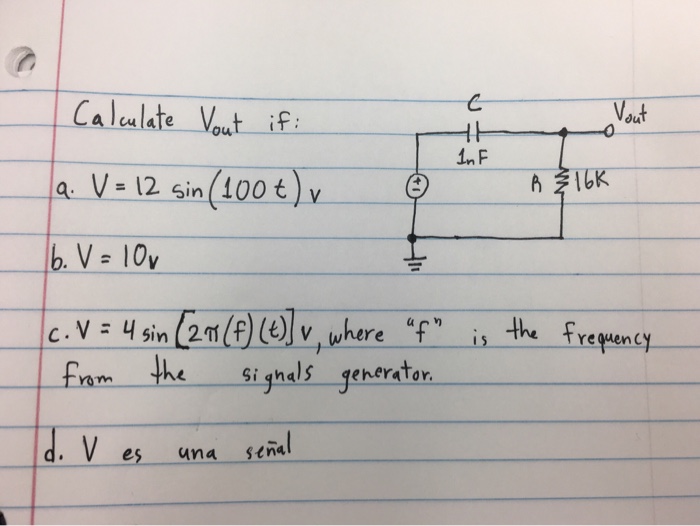 Calculate Vout if:
C
1nF
Vout
R 16K
a. V = 12 sin(100t) v
b. V = 10v
c. V = 4 sin [2π(f)(t)] v, where "f" is the frequency
from the signals generator.
d. V es una señal